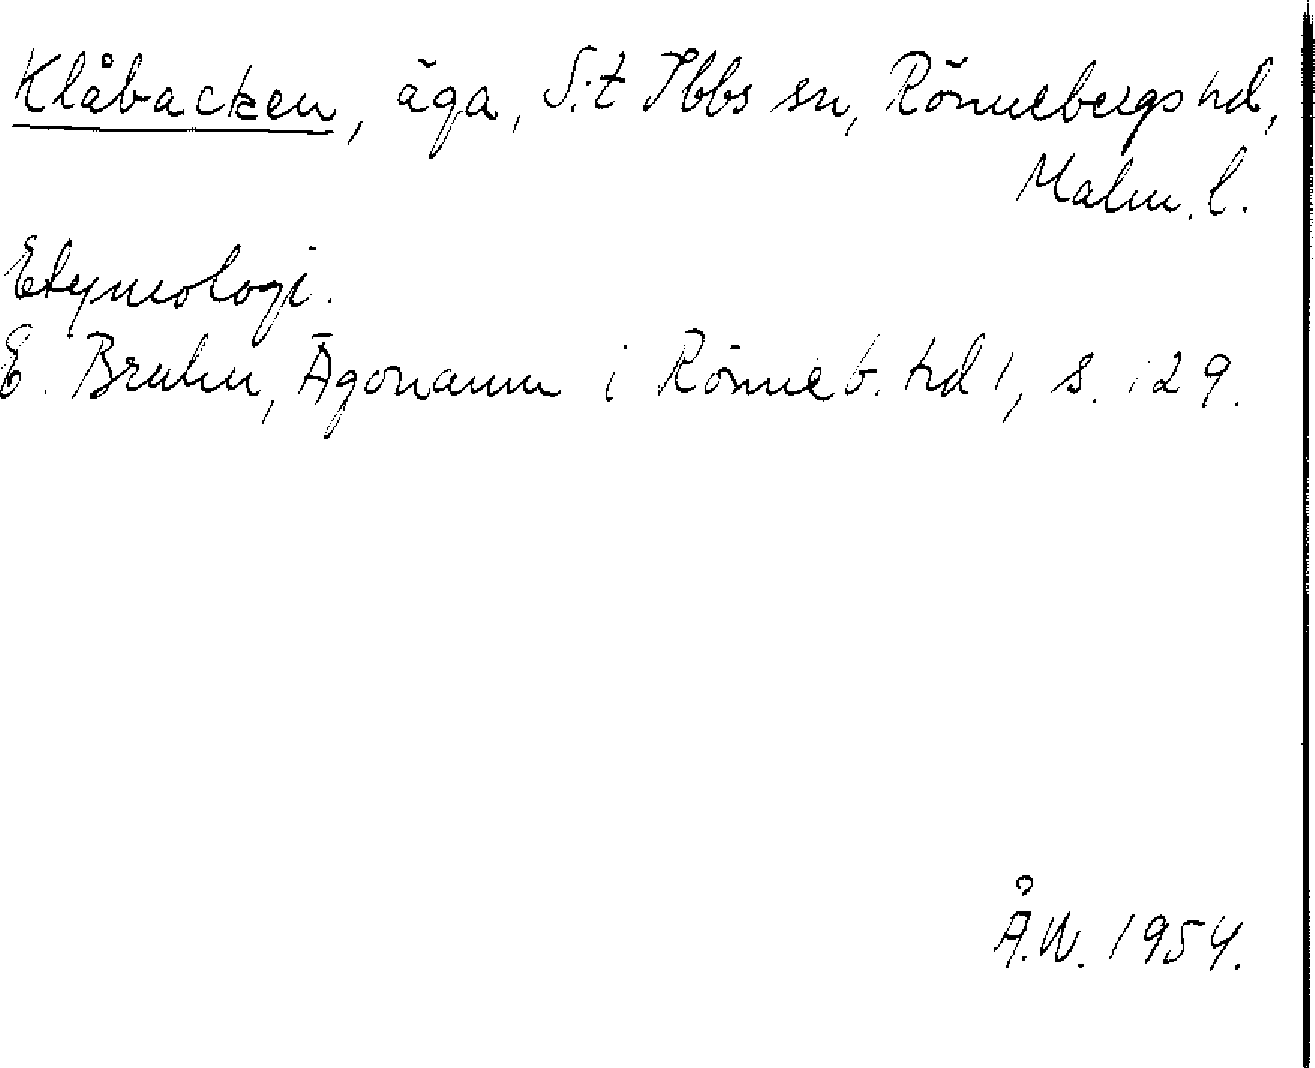 Klåbacken, äga, S:t Ibbs sn, Rönnebergs hd,
Malm. l.
Etymologi.
E. Bruhn, Ägonamn i Rönneb. hd 1, s. 129.
Å.W. 1954.